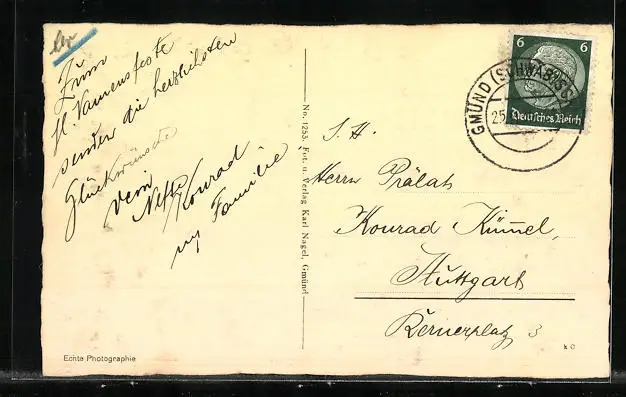 Zum
hl. Namensfeste
senden die herzlichsten
Glückwünsche
Dein
Neffe Konrad
u. Familie
Echte Photographie
No. 1253. Fot. u. Verlag Karl Nagel, Gmünd
6 6
Deutsches Reich
GMÜND (SCHWÄB
25
S. H.
Herrn Prälat
Konrad Kümmel,
Stuttgart
Kernerplatz 3